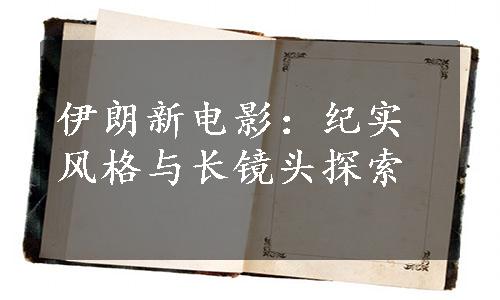 伊朗新电影：纪实
风格与长镜头探索